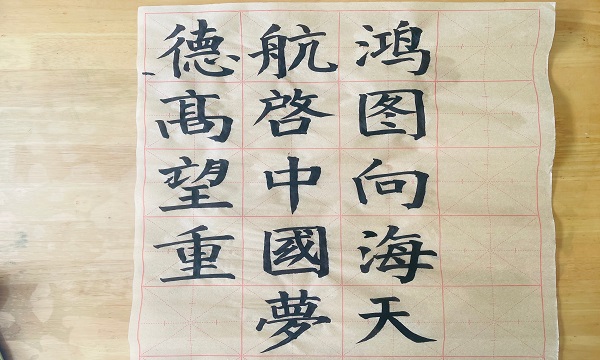 鸿图向海天
航啓中國夢
德髙望重